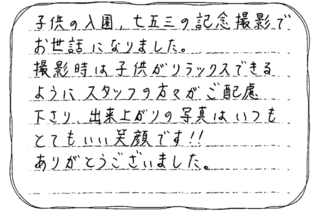 子供の入園,七五三の記念撮影で
お世話になりました。
撮影時は子供がリラックスできる
ように スタッフの方々が ご配慮
下さり、出来上がりの写真は いつも
とてもいい笑顔です!!
ありがとうございました。